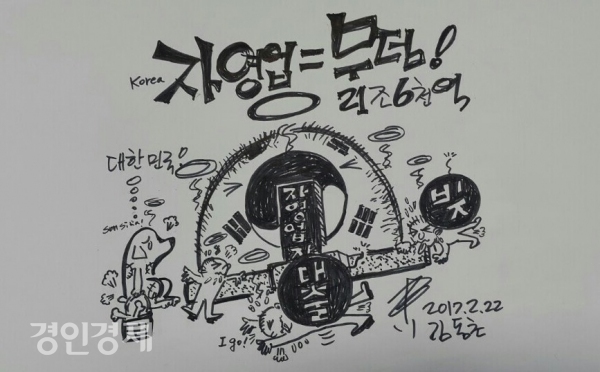 Korea 자영업=무덤!
21조6천억
대한민국!
빚
자영업자
대출
I go!
2017.2.22
경인경제